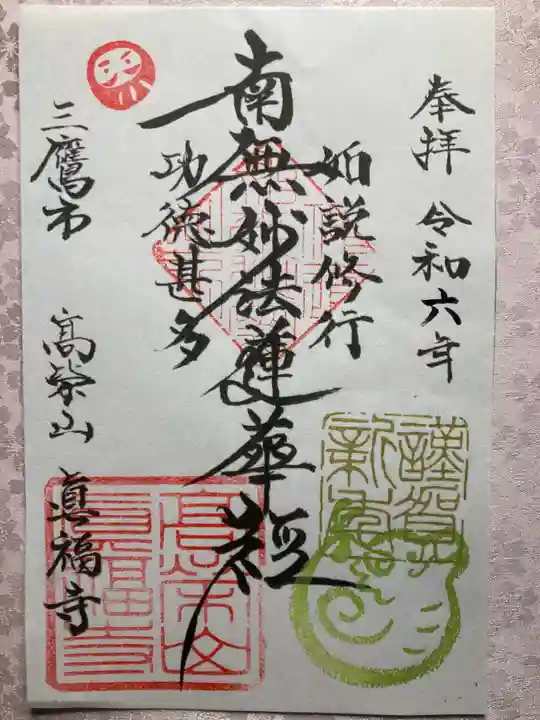 奉拝 令和六年
如説修行
南無妙法蓮華経
功徳甚多
三鷹市 高榮山 真福寺
謹賀
新年